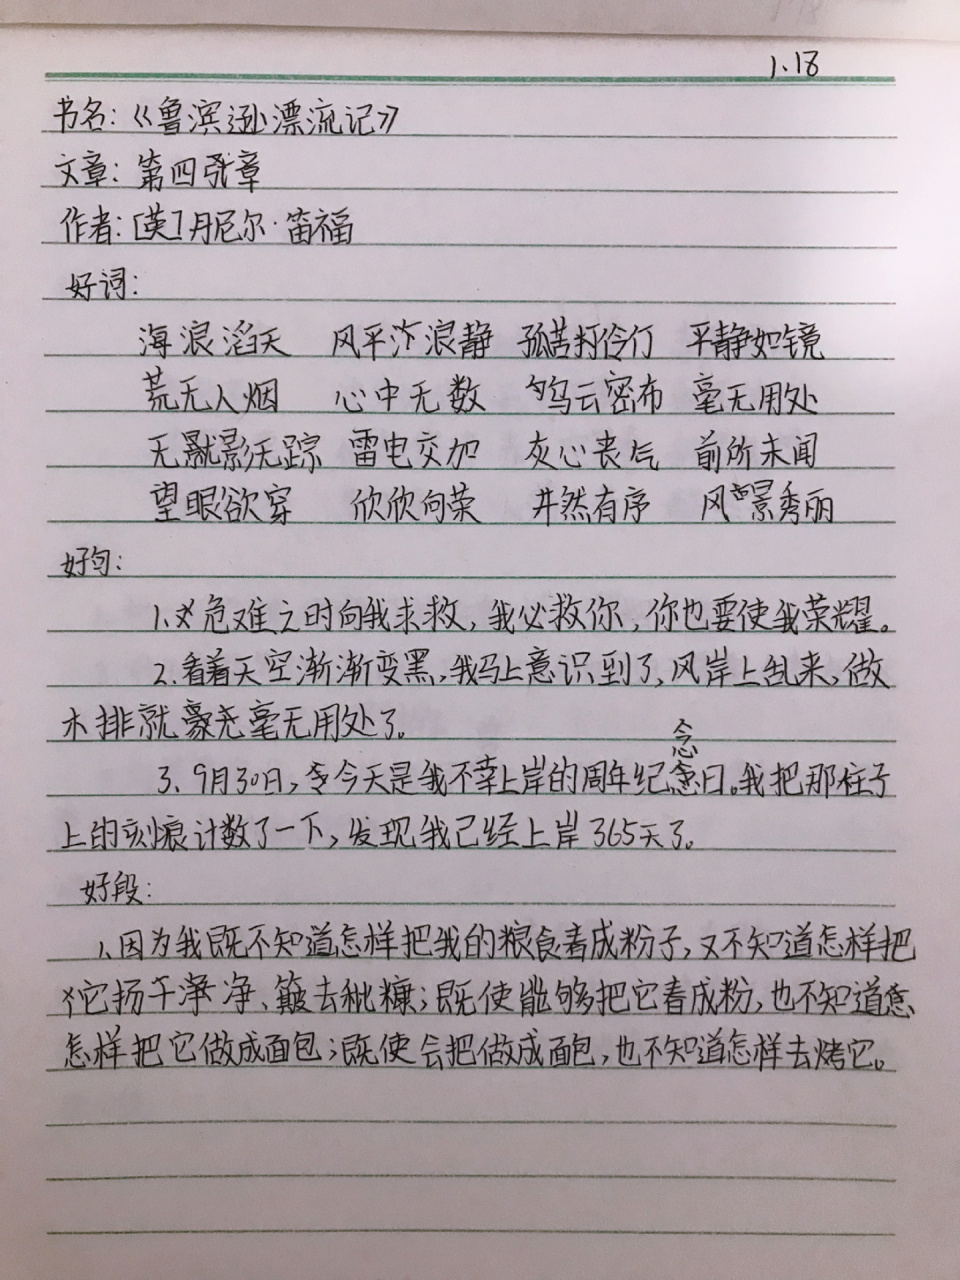 1.18
书名:《鲁滨逊漂流记》
文章:第四张章
作者:[英]丹尼尔·笛福
好词:
海浪滔天 风平浪静 孤苦伶仃 平静如镜
荒无人烟 心中无数 乌云密布 毫无用处
无影无踪 雷电交加 灰心丧气 前所未闻
望眼欲穿 欣欣向荣 井然有序 风景秀丽
好句:
1.危难之时向我求救,我必救你,你也要使我荣耀。
2.看着天空渐渐变黑,我马上意识到了,风岸上乱来,做
木排就毫无用处了。
念
3、9月30日,今天是我不幸上岸的周年纪念日。我把那柱子
上的刻痕计数了一下,发现我已经上岸365天了。
好段:
1.因为我既不知道怎样把我的粮食舂成粉子,又不知道怎样把
它扬干净、簸去秕糠;既使能够把它舂成粉,也不知道怎
怎样把它做成面包;既使会把做成面包,也不知道怎样去烤它。